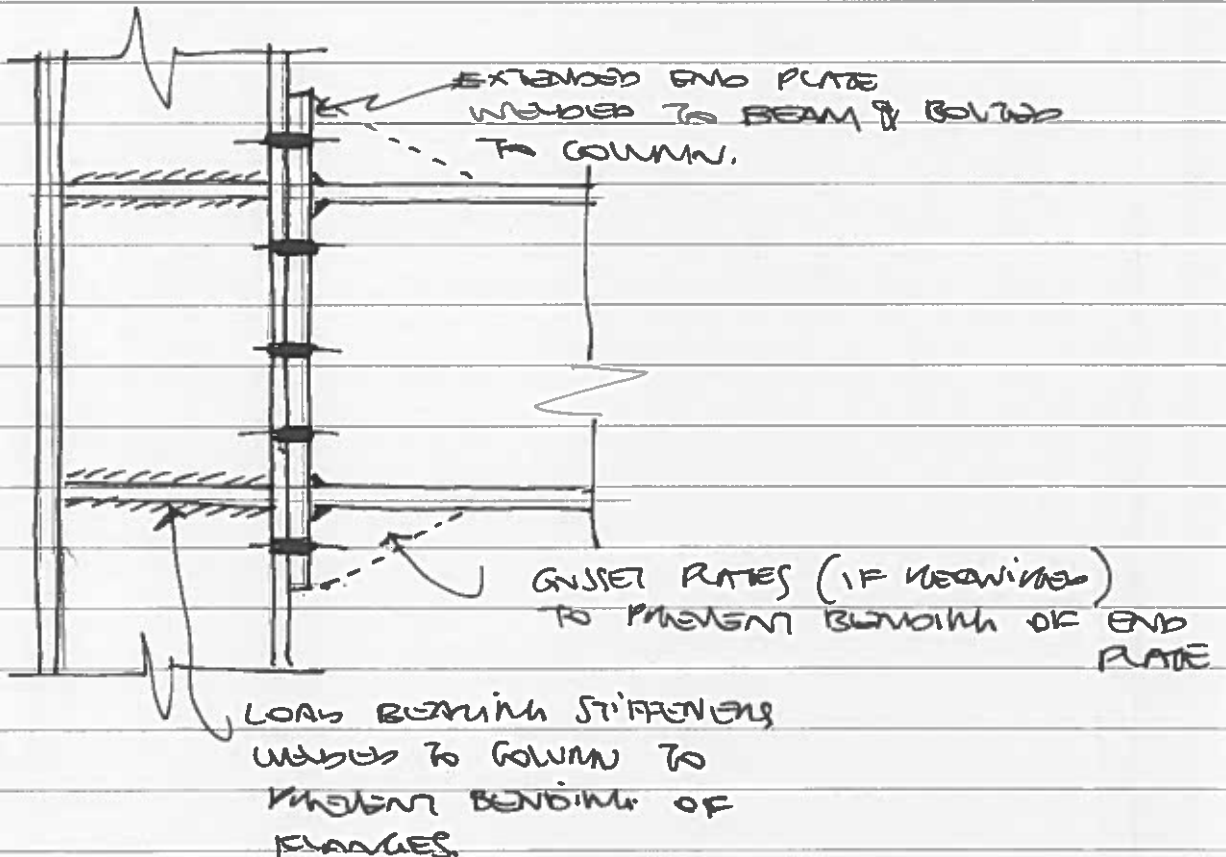 EXTENDED END PLATE
WELDED TO BEAM & BOLTED
TO COLUMN.
GUSSET PLATES (IF REQUIRED)
TO PREVENT BENDING OF END
PLATE
LOAD BEARING STIFFENERS
WELDED TO COLUMN TO
PREVENT BENDING OF
FLANGES.